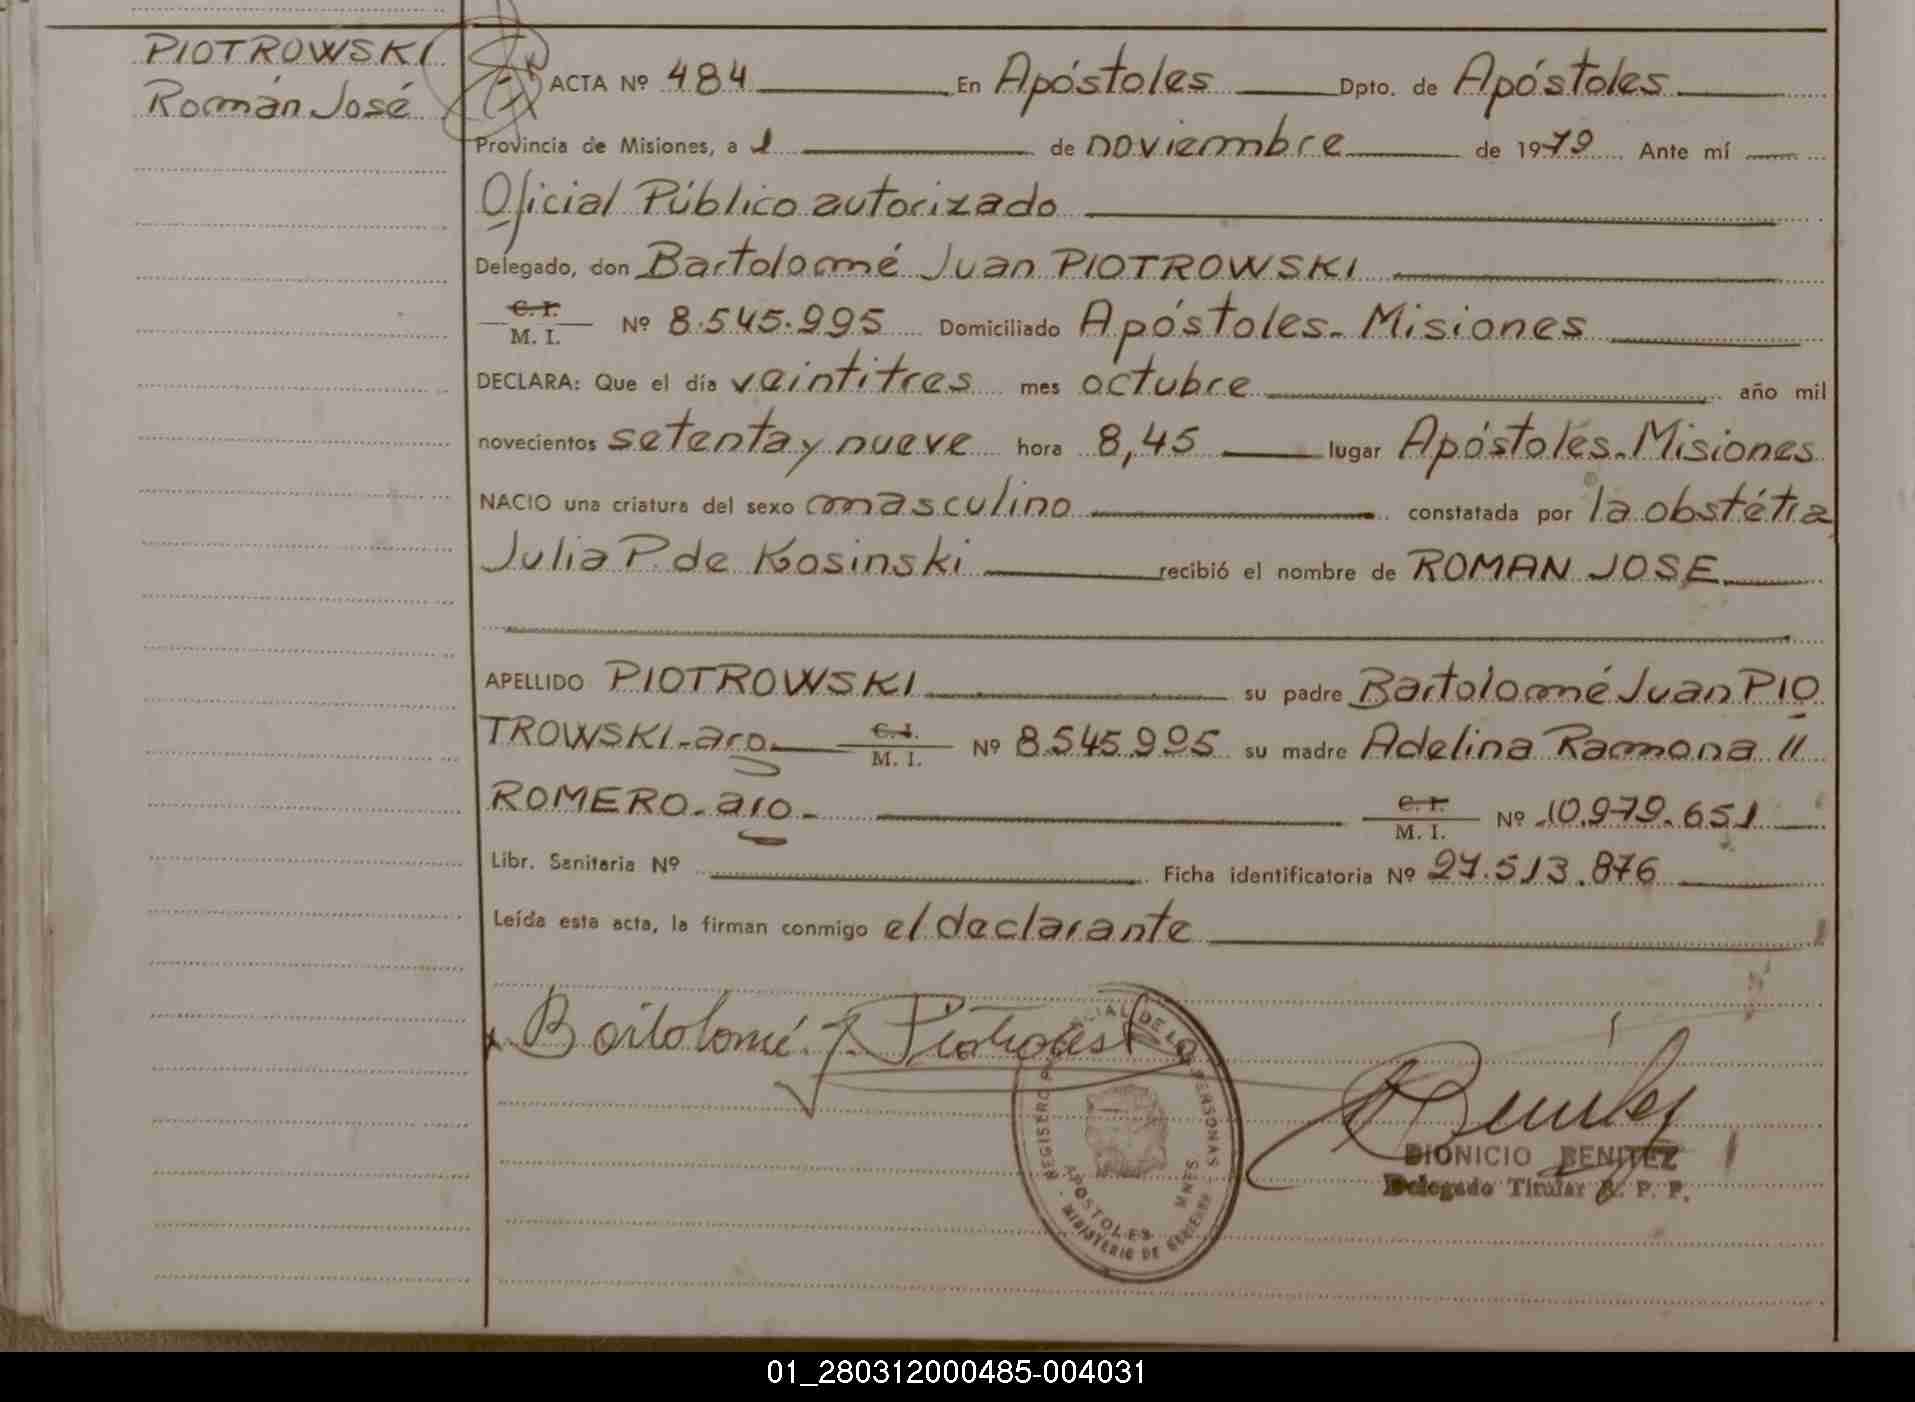 PIOTROWSKI
Román José
ACTA Nº 484 En Apóstoles Dpto. de Apóstoles
Provincia de Misiones, a 1 de noviembre de 1979 Ante mí
Oficial Público autorizado
Delegado, don Bartolomé Juan PIOTROWSKI
C. I.
M. I. Nº 8.545.995 Domiciliado Apóstoles. Misiones
DECLARA: Que el día veintitres mes octubre año mil
novecientos setenta y nueve hora 8,45 lugar Apóstoles. Misiones
NACIO una criatura del sexo masculino constatada por la obstétra
Julia P. de Kosinski recibió el nombre de ROMAN JOSE
APELLIDO PIOTROWSKI su padre Bartolomé Juan PIO
TROWSKI-arg. C. I. M. I. Nº 8.545.995 su madre Adelina Ramona "
ROMERO-arg- C. I. M. I. Nº 10.979.651
Libr. Sanitaria Nº Ficha identificatoria Nº 27.513.876
Leída esta acta, la firman conmigo el declarante
Bartolomé J. Piotrowski
Benitez
DIONICIO BENITEZ
Delegado Titular R. P. P.
REGISTRO PROVINCIAL DE LAS PERSONAS
APOSTOLES MNES
MINISTERIO DE GOBIERNO
01_280312000485-004031